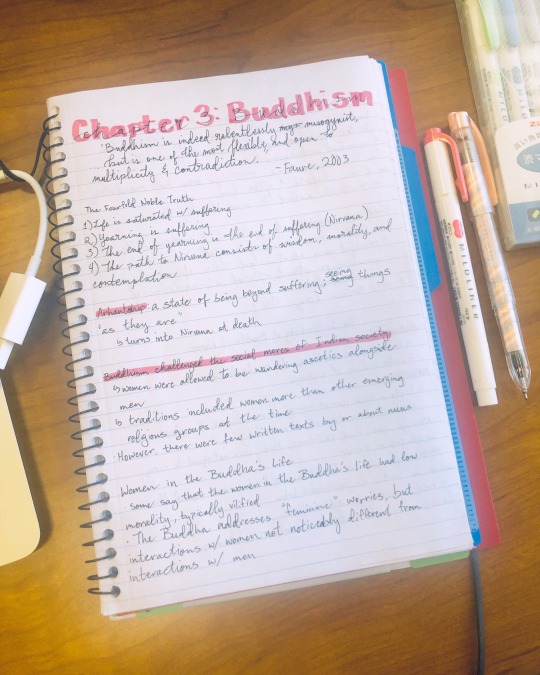 Chapter 3: Buddhism
"Buddhism is indeed relentlessly misogynist,
but is one of the most flexible and open to
multiplicity & contradiction."
- Faure, 2003
The Fourfold Noble Truth
1) Life is saturated w/ suffering
2) Yearning is suffering
3) The end of yearning is the end of suffering (Nirvana)
4) The path to Nirvana consists of wisdom, morality, and
contemplation
Arhantship: a state of being beyond suffering; seeing things
"as they are"
↳ turns into Nirvana at death
Buddhism challenged the social mores of Indian society
↳ women were allowed to be wandering ascetics alongside
men
↳ traditions included women more than other emerging
religious groups at the time
However, there were few written texts by or about nuns
Women in the Buddha's Life
some say that the women in the Buddha's life had low
morality, typically vilified
The Buddha addresses "femmine" worries, but
interactions w/ women not noticeably different from
interactions w/ men
MILDLINER